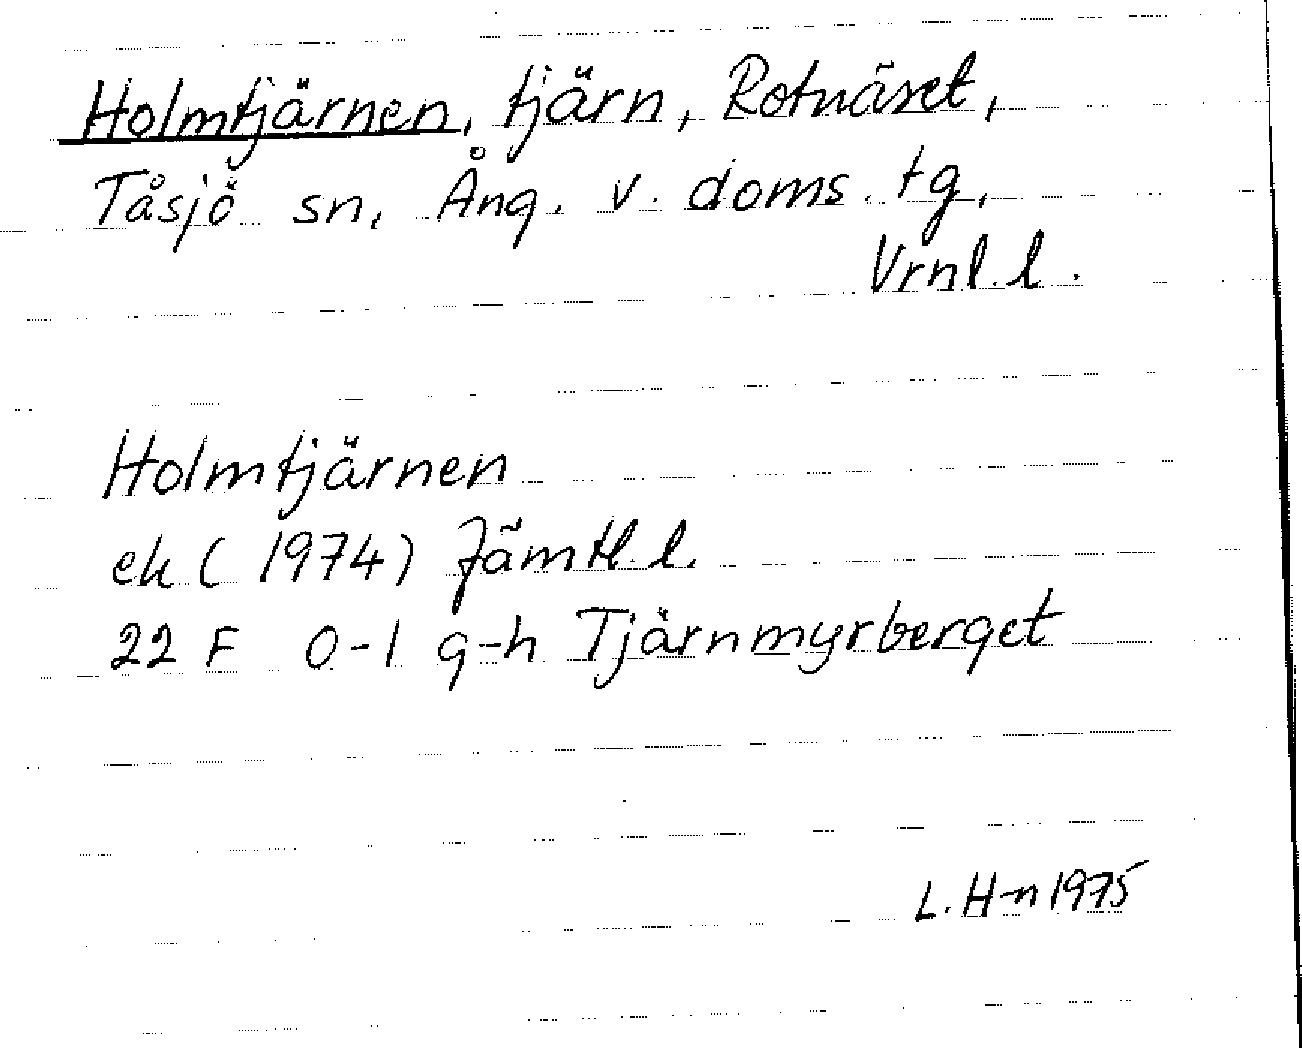 Holmtjärnen, tjärn, Rotnäset,
Tåsjö sn, Ång. v. doms. tg,
Vrnl. l.
Holmtjärnen
ek (1974) Jämtl. l.
22 F 0-1 g-h Tjärnmyrberget
L. H-n 1975